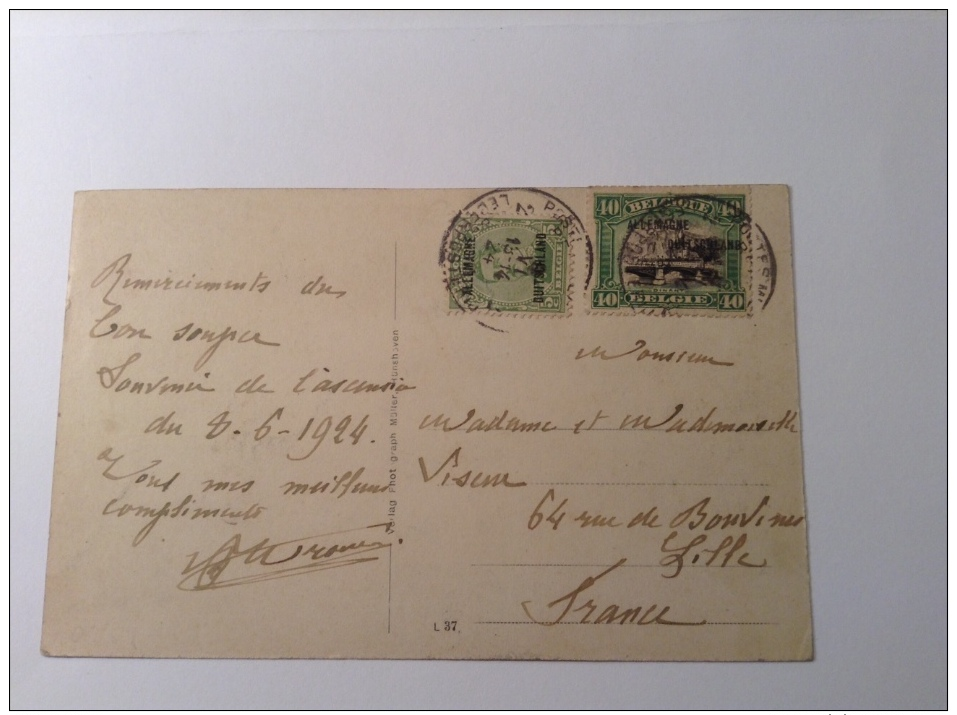 Remerciements du
bon souper
Souvenir de l'ascensio
du 8-6-1924.
Vous mes meilleurs
compliments
Verlag Phot graph Müller, Münsh
L 37.
ALLEMAGNE
DUITSCHLAND
40 BELGIQUE 40
ALLEMAGNE
DUITSCHLAND
40 BELGIE 40
Monsieur
Madame et Mademoiselle
Viseur
64 rue de Bouvines
Lille
France